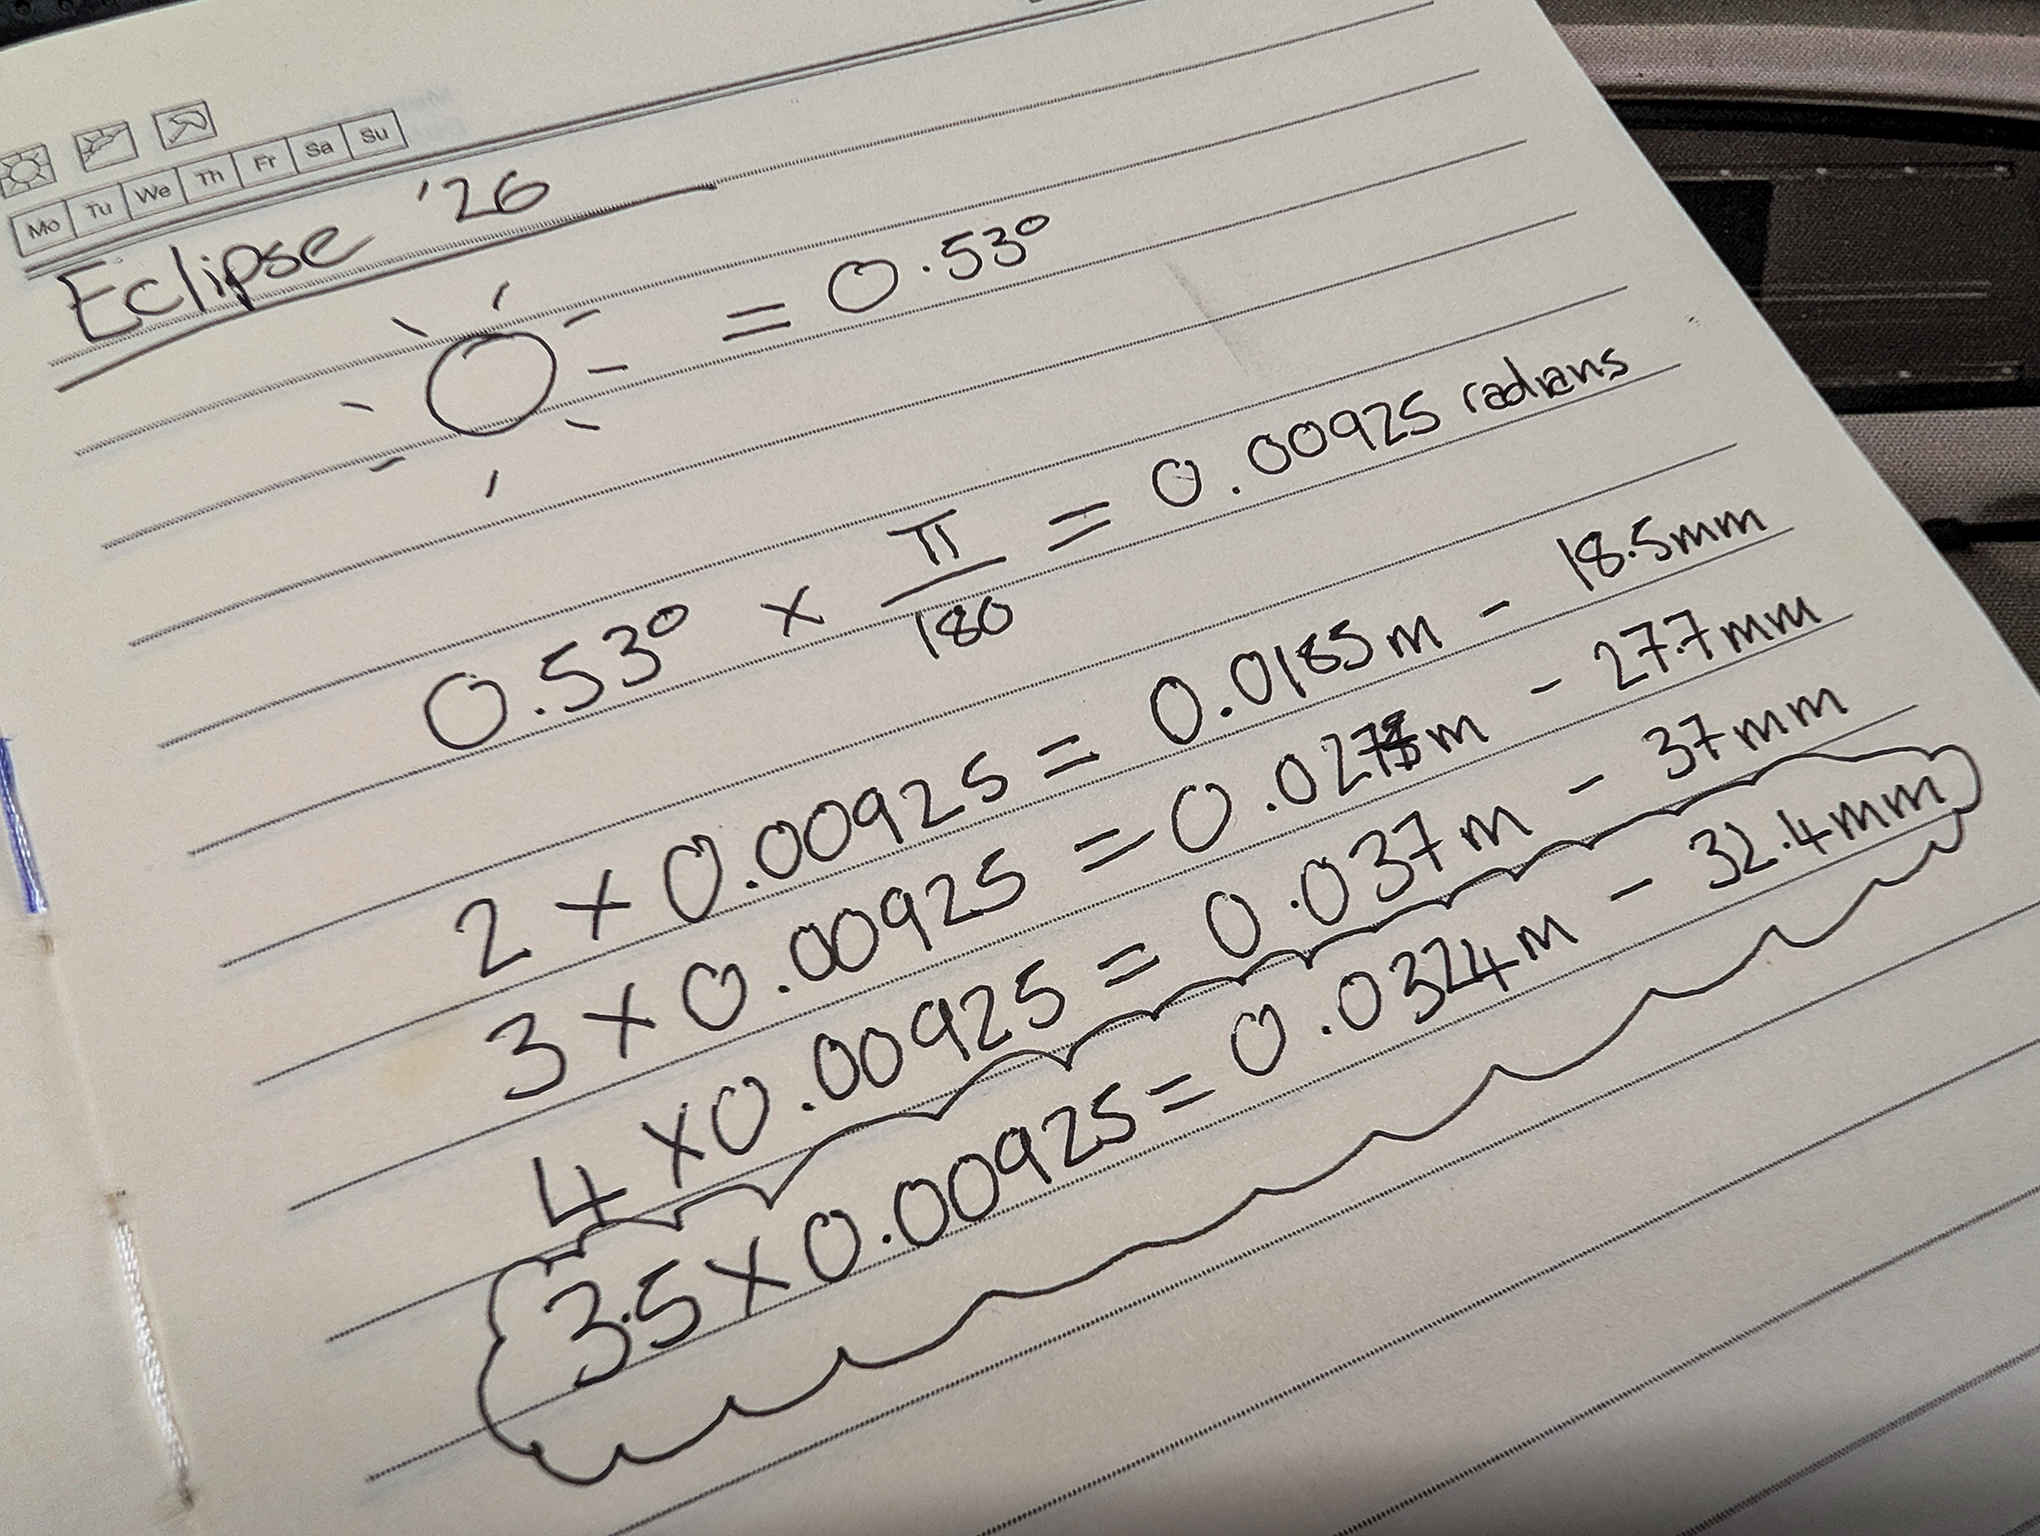 Mo Tu We Th Fr Sa Su
Eclipse '26
= 0.53°
0.53° × π/180 = 0.00925 radians
2 × 0.00925 = 0.0185m - 18.5mm
3 × 0.00925 = 0.0277m - 27.7mm
4 × 0.00925 = 0.037m - 37mm
3.5 × 0.00925 = 0.0324m - 32.4mm